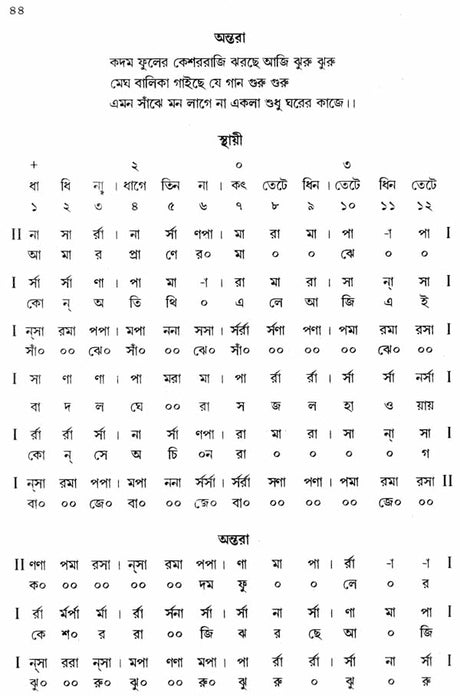 ৪৪
অন্তরা
কদম ফুলের কেশররাজি ঝরছে আজি ঝুরু ঝুরু
মেঘ বালিকা গাইছে যে গান গুরু গুরু
এমন সাঁঝে মন লাগে না একলা শুধু ঘরের কাজে।।
স্থায়ী
+ ২ ০ ৩
ধা ধি না্ । ধাগে তিন না । কৎ তেটে ধিন । তেটে ধিন তেটে
১ ২ ৩ ৪ ৫ ৬ ৭ ৮ ৯ ১০ ১১ ১২
II না সা র্রা । না র্সা ণপা । মা রা মা । পা -া পা I
আ মা র প্রা ণে র০ মা ০ ০ ঝে ০ ০
I র্সা র্সা ণা । পা মা -া । রা মা রা । সা না্ সা I
কো ন্ অ তি থি ০ এ লে আ জি এ ই
I ন্সা রমা পপা । মপা ননা সসা । র্সর্রা র্সণা পণা । পমা রমা রসা I
সাঁ০ ০০ ঝে০ সাঁ০ ০০ ঝে০ সাঁ০ ০০ ০০ ০০ ঝে০ ০০
I সা ণা ণা । পা মরা মা । পা র্রা র্রা । র্সা র্সা নর্সা I
বা দ ল ঘে ০০ রা স জ ল হা ও য়ায়
I র্রা র্রা র্সা । না র্সা ণপা । রা মা রা । সা না্ সা I
কো ন্ সে অ চি ০ন রা ০ ০ ০ ০ গ
I ন্সা রমা পপা । মপা ননা র্সর্সা । র্সর্রা সণা পণা । পমা রমা রসা II
বা০ ০০ জে০ বা০ ০০ জে০ বা০ ০০ ০০ ০০ জে০ ০০
অন্তরা
II ণণা পমা রসা । ন্সা রমা পপা । ণা মা পা । র্রা -া -া I
ক০ ০০ ০০ ০০ ০০ দম ফু ০ ০ লে ০ র
I র্রা র্মর্পা র্মা । র্রা র্সনা র্সা । র্সা না র্সা । ণা মা পা I
কে শ০ র রা ০০ জি ঝ র ছে আ ০ জি
I ন্সা ররা ন্সা । মপা ণণা মপা । পা র্রা র্রা । র্সা না র্সা I
ঝু০ ০০ রু০ ঝু০ ০০ রু০ ঝু রু ০ ঝু ০ রু